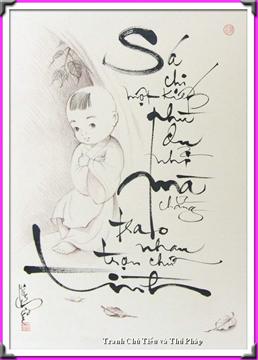 Sá
chi
một kiếp
phù
du
nhỏ
mà
chẳng
trao
nhau
trọn chữ
tình
Tranh Chú Tiểu và Thư Pháp